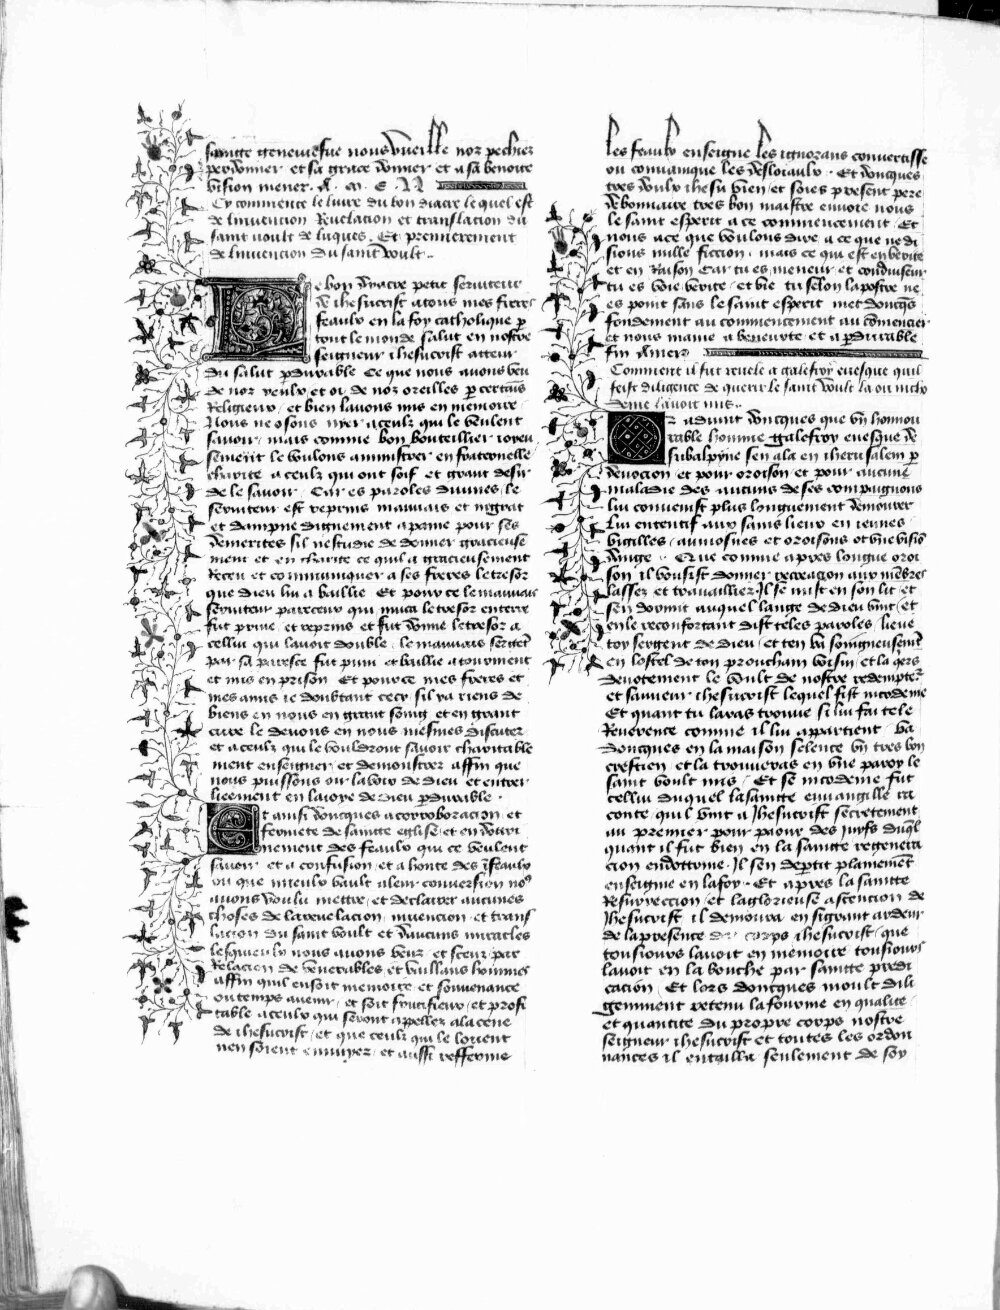 saincte geneuiefue nous vueille noz pechiez
perdonner et sa grace donner et a sa benoite
vision mener. A. M. E. N
Cy commence le liure du bon diacre le quel est
de linuencion Reuelacion et translacion du
saint voult de luques. Et premierement
de linuencion du saint voult.
Le bon dyacre petit seruiteur
de ihesucrist a tous mes freres
feaulx en la foy catholique p
tout le monde salut en nostre
seigneur ihesucrist acteur
du salut pdurable Ce que nous auons veu
de noz yeulx et oi de noz oreilles p certains
Religieux / et bien lauons mis en memoire
Nous ne osons nyer a ceulx qui le veulent
sauoir / mais comme bon bouteillier ioyeu
sement le voulons aministrer en fraternelle
charite a ceulx qui ont soif et grant desir
de le sauoir / Car es paroles diuines / le
seruiteur est reprins mauuais et ingrat
et dampne dignement a peine pour ses
demerites sil nestudie de donner gracieuse
ment et en charite ce quil a gracieusement
Receu et communiquer a ses freres le tresor
que dieu lui a baillie Et pour ce le mauuais
seruiteur pareceux qui muca le tresor en terre
fut priue / et reprins et fut donne le tresor a
cellui qui lauoit double / le mauuais sergent
par sa paresce fut puni et baillie a tourment
et mis en prison Et pour ce mes freres et
mes amis ie doubtant cecy / sil ya riens de
biens en nous en grant soing et en grant
cure le deuons en nous mesmes discuter
et a ceulx qui le vouldront sauoir charitable
ment enseigner / et demonstrer affin que
nous puissons oir la voix de dieu et entrer
lieement en la ioye de dieu pdurable .
Et ainsi doncques a corroboracion / et
fermete de saincte eglise / et en
nement des feaulx qui ce veulent
sauoir / et a confusion / et a honte des ifeaulx
ou que mieulx vault a leur conuersion no9
auons voulu mettre / et declairer aucunes
choses de la reuelacion / inuencion et trans
lacion du saint voult et daucuns miracles
lesquieulx nous auons veuz et sceuz par
Relacion de venerables / et vaillans hommes
affin quil en soit memoire / et souuenance
ou temps auenir / et soit fructifieux / et profi
table a ceulx qui seront appellez a la cene
de ihesucrist / et que ceulx qui le loirent
nen soient ennuyez / et aussi refferme
les feaulx enseigne les ignorans conuertisse
ou conuainque les desloiaulx . Et doncques
tres doulx ihesu vien / et soies present pere
debonnaire tres bon maistre enuoie nous
le saint esperit a ce commencement / Et
nous a ce que voulons dire / a ce que ne di
sions mille ficcion / mais ce qui est en verite
et en Raison Car tu es meneur et conduiseur
tu es voie verite / et vie tu selon lapostre ne
es point sans le saint esperit met doncqs
fondement au commencement au commencier
et nous maine a beneurte / et a pdurable
fin Amen
Comment il fut reuele a galefroy euesque quil
feist diligence de querir le saint voult la ou nicho
deme lauoit mis.
Or aduint doncques que vn honnou
rable homme galefroy euesque de
subalpyne sen ala en iherusalem p
deuocion / et pour oroison / et pour aucune
maladie des aucuns de ses compaignons
lui conuenist plus longuement demourer
lui ententif aux sains lieux en ieunes /
vigilles / aumosnes et oroisons ot vne visio
dange . Que comme apres longue oroi
son il voulsist donner recreacion aux mebres
lassez et trauaillier / Il se mist en son lit / et
sen dormit auquel lange de dieu vint / et
en le reconfortant dist teles paroles / lieue
toy sergent de dieu / et ten va soingneusemt
en lostel de ton prouchain voisin / et la qers
deuotement le voult de nostre redempteur
et sauueur ihesucrist lequel fist nicodeme
Et quant tu laras trouue si lui fai tele
Reuerence comme il lui appartient / va
doncques en la maison selence vn tres bon
crestien / et la trouueras en vne paroy le
saint voult mis / Et se nicodeme fut
cellui duquel la saincte euuangille ra
conte / quil vint a ihesucrist secretement
au premier pour paour des iuifs duql
quant il fut bien en la saincte regenera
cion endottrine . Il sen deptit plainement
enseigne en la foy . Et apres la saincte
Resurreccion / et la glorieuse ascencion de
ihesucrist il demoura en si grant ardeur
de la presence du corps ihesucrist / que
tousiours lauoit en memoire tousiours
lauoit en la bouche par saincte predi
cacion / Et lors doncques moult dili
gemment retenu la fourme en qualite /
et quantite du propre corps nostre
seigneur ihesucrist et toutes les ordon
nances il entailla seulement de soy